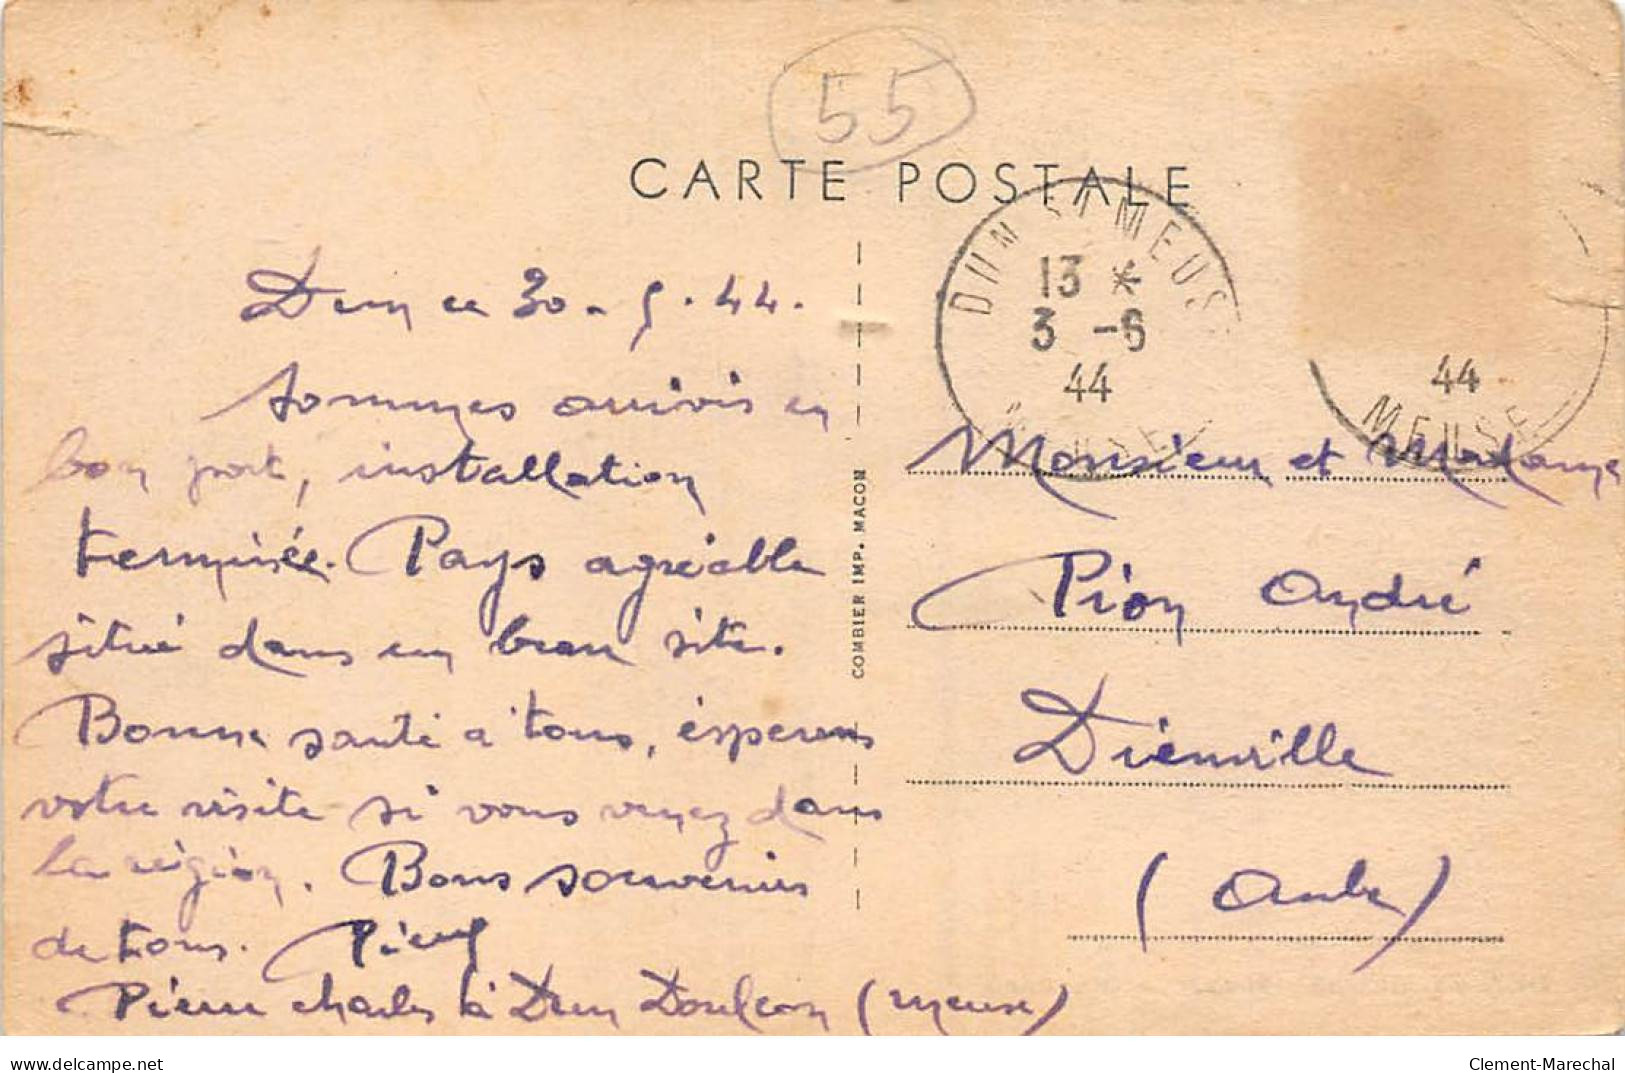 55
CARTE POSTALE
DUN S/ MEUSE
13 *
3 -6
44
MEUSE
44
MEUSE
Dun ce 30-5-44.
Sommes arrivés en
bon port, installation
terminée. Pays agréable
situé dans un beau site.
Bonne santé à tous, espérons
votre visite si vous venez dans
la région. Bons souvenirs
de tous. Pierre
Pierre Charles à Dun Doulcon (Meuse)
COMBIER IMP. MACON
Monsieur et Madame
Pion André
Dienville
(Aube)
delcampe.net
Clement-Marechal